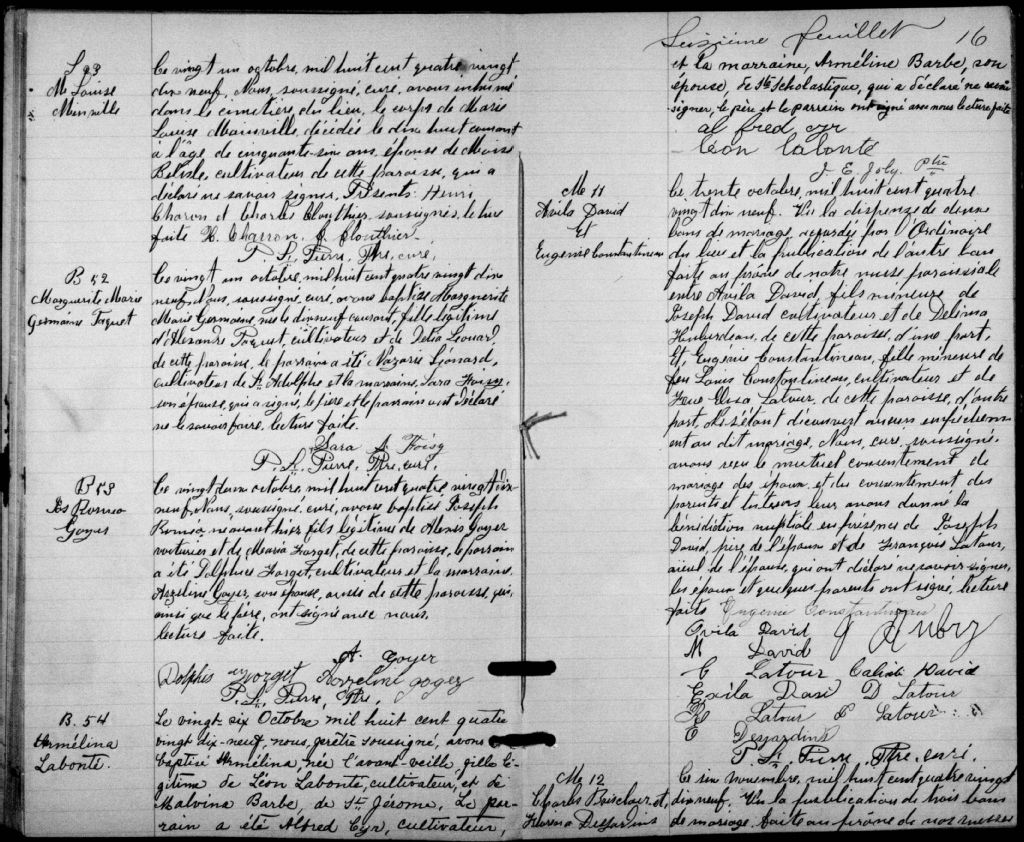 S 23
M. Louise
Mainville
Ce vingt un octobre, mil huit cent quatre vingt
dix neuf, Nous, soussigné, curé, avons inhumé
dans le cimetière du lieu, le corps de Marie
Louise Mainville, décédée le dix huit courant
à l'âge de cinquante-six ans, épouse de Moise
Belisle, cultivateur de cette paroisse, qui a
déclaré ne savoir signer, Présents: Henri
Charon et Charles Clouthier soussignés, lecture
faite H. Charron C. Clouthier
P. St. Pierre, Ptre, curé,
B 52
Marguerite Marie
Germaine Paquet
Ce vingt un octobre, mil huit cent quatre vingt dix
neuf, Nous, soussigné, curé, avons baptisé Marguerite
Marie Germaine, née le dix neuf courant, fille légitime
d'Alexandre Paquet, cultivateur et de Delia Léonard,
de cette paroisse, le parrain a été Nazaire Léonard,
cultivateur de St. Adolphe et la marraine, Sara Foisy,
son épouse, qui a signé, le père et le parrain ont déclaré
ne le savoir faire, lecture faite.
Sara A. Foisy
P. St. Pierre, Ptre, curé,
B 53
Jos Roméo
Goyer
Ce vingt deux octobre, mil huit cent quatre vingt dix
neuf, Nous, soussigné, curé, avons baptisé Joseph
Roméo, né avant hier, fils légitime de Alexis Goyer
voiturier et de Maria Forget, de cette paroisse, le parrain
a été Dolphis Forget, cultivateur et la marraine,
Azeline Goyer, son épouse, aussi de cette paroisse, qui,
ainsi que le père, ont signé avec nous.
lecture faite.
A. Goyer
Dolphis Forget Azzeline Goyer
P. St. Pierre, Ptre.
B. 54
Armélina
Labonté.
Le vingt-six Octobre mil huit cent quatre
vingt dix-neuf, nous, prêtre soussigné, avons
baptisé Armélina née l'avant-veille, fille lé-
gitime de Léon Labonté, cultivateur, et de
Malvina Barbe, de St. Jérôme. Le par-
rain a été Alfred Cyr, cultivateur,
Seizième feuillet 16
et la marraine, Arméline Barbe, son
épouse, de Ste Scholastique, qui a déclaré ne savoir
signer, le père et le parrain ont signé avec nous lecture faite
al fred cyr
Léon Labonté
J. E. Joly. Ptre
M 11
Avila David
Et
Eugénie Constantineau
Ce trente octobre, mil huit cent quatre
vingt dix neuf. Vu la dispense de deux
bans de mariage, accordée par l'Ordinaire
du lieu et la publication de l'autre ban
faite au prône de notre messe paroissiale
entre Avila David, fils mineur de
Joseph David cultivateur et de Delima
de cette paroisse, d'une part,
Et, Eugénie Constantineau, fille mineure de
feu Louis Constantineau, cultivateur et de
Feue Elisa Latour, de cette paroisse, d'autre
part, Ne s'étant découvert aucun empêchement
au dit mariage, Nous, curé, soussigné,
avons reçu le mutuel consentement de
mariage des époux, et du consentement des
parents et tuteurs leur avons donné la
bénédiction nuptiale en présence de Joseph
David, père de l'époux et de François Latour,
aïeul de l'épouse, qui ont déclaré ne savoir signer,
les époux et quelques parents ont signé, lecture
faite Eugenie Constantineau
Ovila David J Aubry
M David
C Latour David
Exila D Latour
R Latour E Latour
E Desjardins
P. St. Pierre, Ptre, curé.
M 12
Charles Brisclair et,
Desjardins
Ce six novembre, mil huit cent quatre vingt
dix neuf. Vu la publication de trois bans
de mariage faite au prône de nos messes